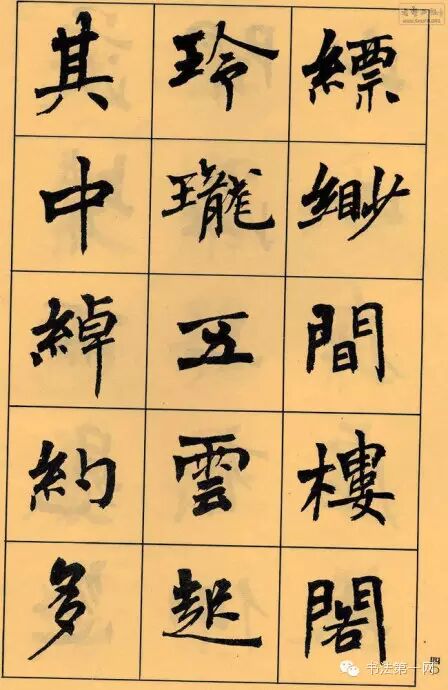 縹緲間樓閣
玲瓏五雲起
其中綽約多
四〇
书法第一网